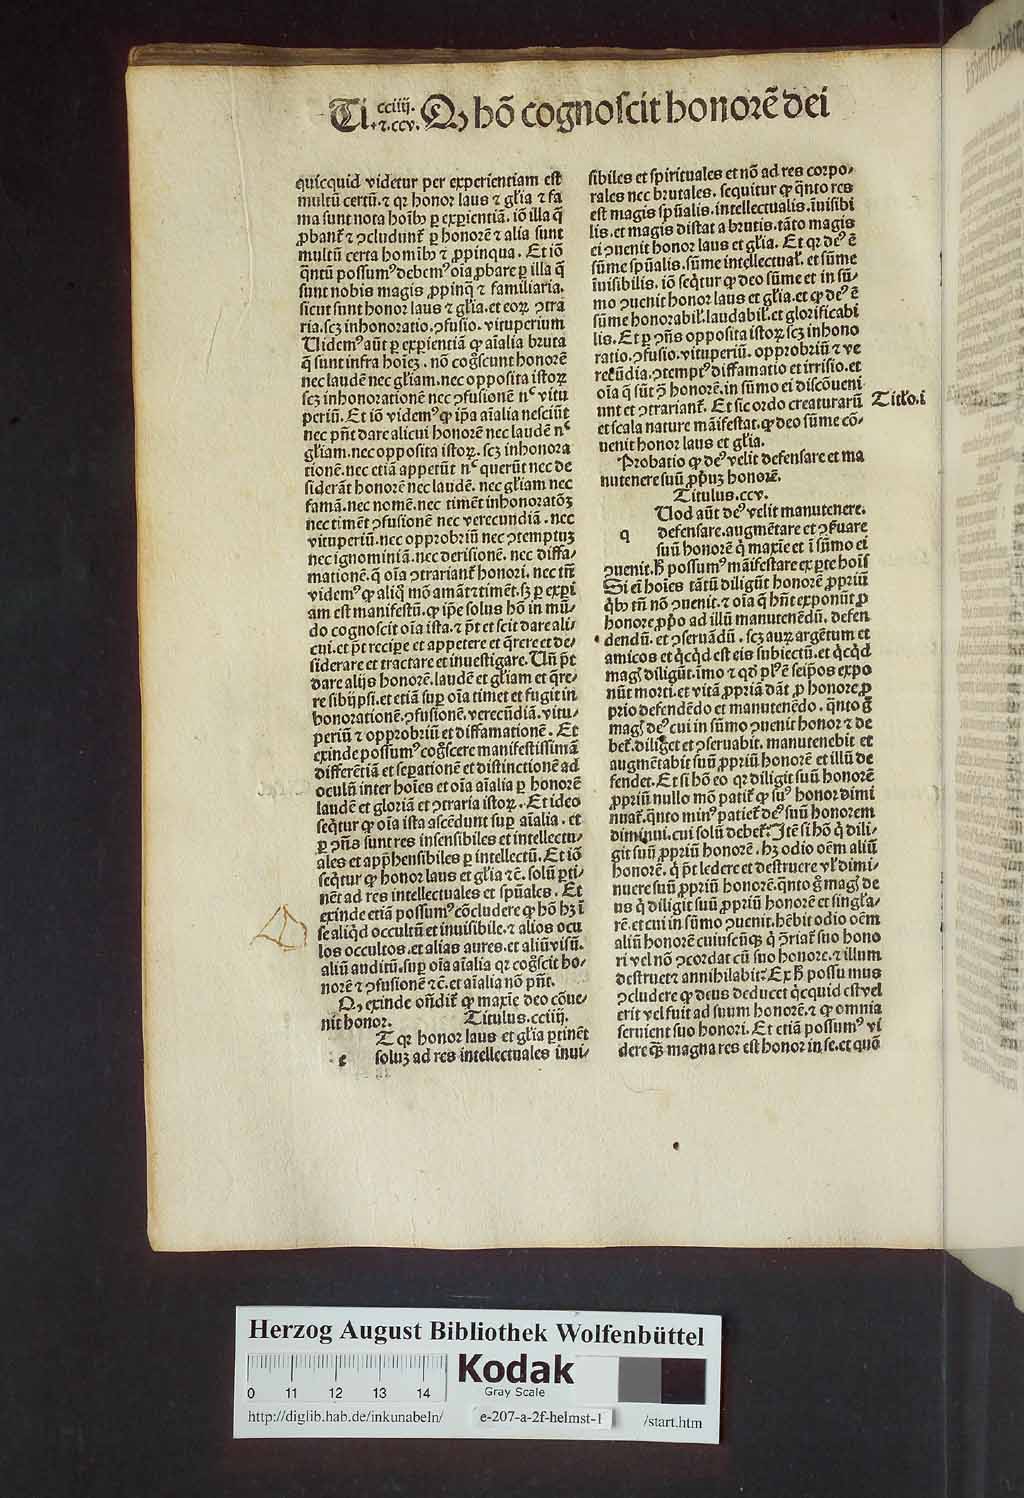 Ti. cciiij. ⁊.ccv. Qꝫ hõ cognoſcit honorẽ dei
quicquid videtur per experientiam eſt
multũ certũ.⁊ qꝛ honor laus ⁊ gl̃ia ⁊ fa
ma ſunt nota hoĩbꝰ ꝑ exꝑientiã. iõ illa q̃
ꝓbant᷑ ⁊ ꝯcludunt᷑ ꝑ honorẽ ⁊ alia ſunt
multũ certa homĩbꝰ ⁊ ꝓpinqua. Et iõ
q̃ntũ poſſumꝰ debemꝰ oĩa ꝓbare ꝑ illa q̃
ſunt nobis magis ꝓpinq̃ ⁊ familiaria.
ſicut ſunt honor laus ⁊ gl̃ia. et eoꝝ ꝯtra
ria. ſcꝫ inhonoratio. ꝯfuſio. vituperium
Uidemꝰ aũt ꝑ exꝑientiã ꝙ aĩalia bruta
q̃ ſunt infra hoĩeꝫ. nõ cog̃ſcunt honorẽ
nec laudẽ nec gl̃iam. nec oppoſita iſtoꝝ
ſcꝫ inhonorationẽ nec ꝯfuſionẽ nᶜ vitu
periũ. Et iõ videmꝰ ꝙ ip̃a aĩalia neſciũt
nec pñt dare alicui honorẽ nec laudẽ nᶜ
gl̃iam. nec oppoſita iſtoꝝ. ſcꝫ inhonora
tionẽ. nec etiã appetũt nᶜ querũt nec de
ſiderãt honorẽ nec laudẽ. nec gl̃iam nec
famã. nec nomẽ. nec timẽt inhonoratõꝫ
nec timẽt ꝯfuſionẽ nec verecundiã. nec
vituperiũ. nec opprobriũ nec ꝯtemptuꝫ
nec ignominiã. nec deriſionẽ. nec diffa⸗
mationẽ. q̃ oĩa ꝯtrariant᷑ honori. nec tñ
videmꝰ ꝙ aliq̃ mõ amãt ⁊ timẽt. ſꝫ ꝑ exꝑi
am eſt manifeſtũ. ꝙ ip̃e ſolus hõ in mũ⸗
do cognoſcit oĩa iſta. ⁊ põt et ſcit dare ali⸗
cui. et põt recipe et appetere et q̃rere et de⸗
ſiderare et tractare et inueſtigare. Uñ põt
dare alijs honorẽ. laudẽ et gl̃iam et q̃re⸗
re ſibijpſi. et etiã ſuꝑ oĩa timet et fugit in
honorationẽ. ꝯfuſionẽ. verecũdiã. vitu⸗
periũ ⁊ opprobriũ et diffamationẽ. Et
exinde poſſumꝰ cog̃ſcere manifeſtiſſimã
differẽtiã et ſeparationẽ et diſtinctionẽ ad
oculũ inter hoĩes et oĩa aĩalia ꝑ honorẽ
laudẽ et gloriã et ꝯtraria iſtoꝝ. Et ideo
ſeq̃tur ꝙ oĩa iſta aſcẽdunt ſuꝑ aĩalia. et
ꝑ ꝯñs ſunt res inſenſibiles et intellectu⸗
ales et app̃henſibiles ꝑ intellectũ. Et iõ
ſeq̃tur ꝙ honor laus et gl̃ia ⁊c̃. ſolũ ꝑti⸗
nẽt ad res intellectuales et ſpũales. Et
exinde etiã poſſumꝰ cõcludere ꝙ hõ hꝫ ĩ
ſe aliq̇d occultũ et inuiſibile. ⁊ alios ocu
los occultos. et alias aures. et aliũ viſũ.
aliũ auditũ. ſuꝑ oĩa aĩalia qꝛ cog̃ſcit ho⸗
norẽ ⁊ ꝯfuſionẽ ⁊c̃. et aĩalia nõ pñt.
Qꝫ exinde oñdit᷑ ꝙ maxĩe deo cõue⸗
nit honor. Titulus.cciiij.
e T qꝛ honor laus et gl̃ia ꝑtinẽt
ſoluꝫ ad res intellectuales inui⸗
ſibiles et ſpirituales et nõ ad res corpo⸗
rales nec brutales. ſequitur ꝙ q̃nto res
eſt magis ſpũalis. intellectualis. ĩuiſibi
lis. et magis diſtat a brutis. tãto magis
ei ꝯuenit honor laus et gl̃ia. Et qꝛ deꝰ ẽ
ſũme ſpũalis. ſũme intellectual᷑. et ſũme
ĩuiſibilis. iõ ſeq̃tur ꝙ deo ſũme et in ſũ⸗
mo ꝯuenit honor laus et gl̃ia. et ꝙ deꝰ ẽ
ſũme honorabil᷑. laudabil᷑. et glorificabi
lis. Et ꝑ ꝯñs oppoſita iſtoꝝ ſcꝫ inhono
ratio. ꝯfuſio. vituperiũ. opprobriũ ⁊ ve
recũdia. ꝯtemptꝰ diffamatio et irriſio. et
oĩa q̃ ſũt ꝯ̃ honorẽ. in ſũmo ei diſcõueni
unt et ꝯtrariant᷑. Et ſic ordo creaturarũ
et ſcala nature mãifeſtat. ꝙ deo ſũme cõ⸗
uenit honor laus et gl̃ia.
Titl̃o.i
Probatio ꝙ deꝰ velit defenſare et ma
nutenere ſuũ ꝓpriuꝫ honorẽ.
Titulus.ccv.
q Uod aũt deꝰ velit manutenere.
defenſare. augmẽtare et ꝯſeruare
ſuũ honorẽ q̇ maxĩe et ĩ ſũmo ei
ꝯuenit. h̃ poſſumꝰ mãifeſtare ex ꝑte hoĩs
Si eĩ hoĩes tãtũ diligũt honorẽ ꝓpriũ
q̇bꝰ tñ nõ ꝯuenit. ⁊ oĩa q̃ hñt exponũt ꝓ
honore ꝓprio ad illũ manutenẽdũ. defen
dendũ. et ꝯſeruãdũ. ſcꝫ auꝝ argẽtum et
amicos et q̇cq̇d eſt eis ſubiectũ. et q̇cq̇d
magꝭ diligũt. ĩmo ⁊ qd̃ plꝰ ẽ ſeip̃os expo
nũt morti. et vitã ꝓpriã dãt ꝓ honore ꝓ
prio defendẽdo et manutenẽdo. q̃nto g̃
magꝭ deꝰ cui in ſũmo ꝯuenit honor ⁊ de
bet᷑. diliget et ꝯſeruabit. manutenebit et
augmẽtabit ſuũ ꝓpriũ honorẽ et illũ de
fendet. Et ſi hõ eo qꝛ diligit ſuũ honorẽ
ꝓpriũ nullo mõ patit᷑ ꝙ ſuꝰ honor dimi
nuat᷑. q̃nto minꝰ patiet᷑ deꝰ ſuũ honorem
diminui. cui ſolũ debet᷑: Itẽ ſi hõ q̇ dili⸗
git ſuũ ꝓpriũ honorẽ. hꝫ odio oẽm aliũ
honorẽ. q̇ põt ledere et deſtruere vl̃ dimi⸗
nuere ſuũ ꝓpriũ honorẽ. q̃nto g̃ magꝭ de
us q̇ diligit ſuũ ꝓpriũ honorẽ et ſingl̃a⸗
rẽ. et cui in ſũmo ꝯuenit. hẽbit odio oẽm
aliũ honorẽ cuiuſcũqꝫ q̇ ꝯ̃riat᷑ ſuo hono
ri vel nõ ꝯcordat cũ ſuo honore. ⁊ illum
deſtruet ⁊ annihilabit: Ex h̃ poſſu mus
ꝯcludere ꝙ deus deducet q̇cquid eſt vel
erit vel fuit ad ſuum honorẽ. ⁊ ꝙ omnia
ſeruient ſuo honori. Et etiã poſſumꝰ vi
dere qꝫ magna res eſt honor in ſe. et quõ
Herzog August Bibliothek Wolfenbüttel
Kodak
Gray Scale
0 11 12 13 14
http://diglib.hab.de/inkunabeln/ e-207-a-2f-helmst-1 /start.htm